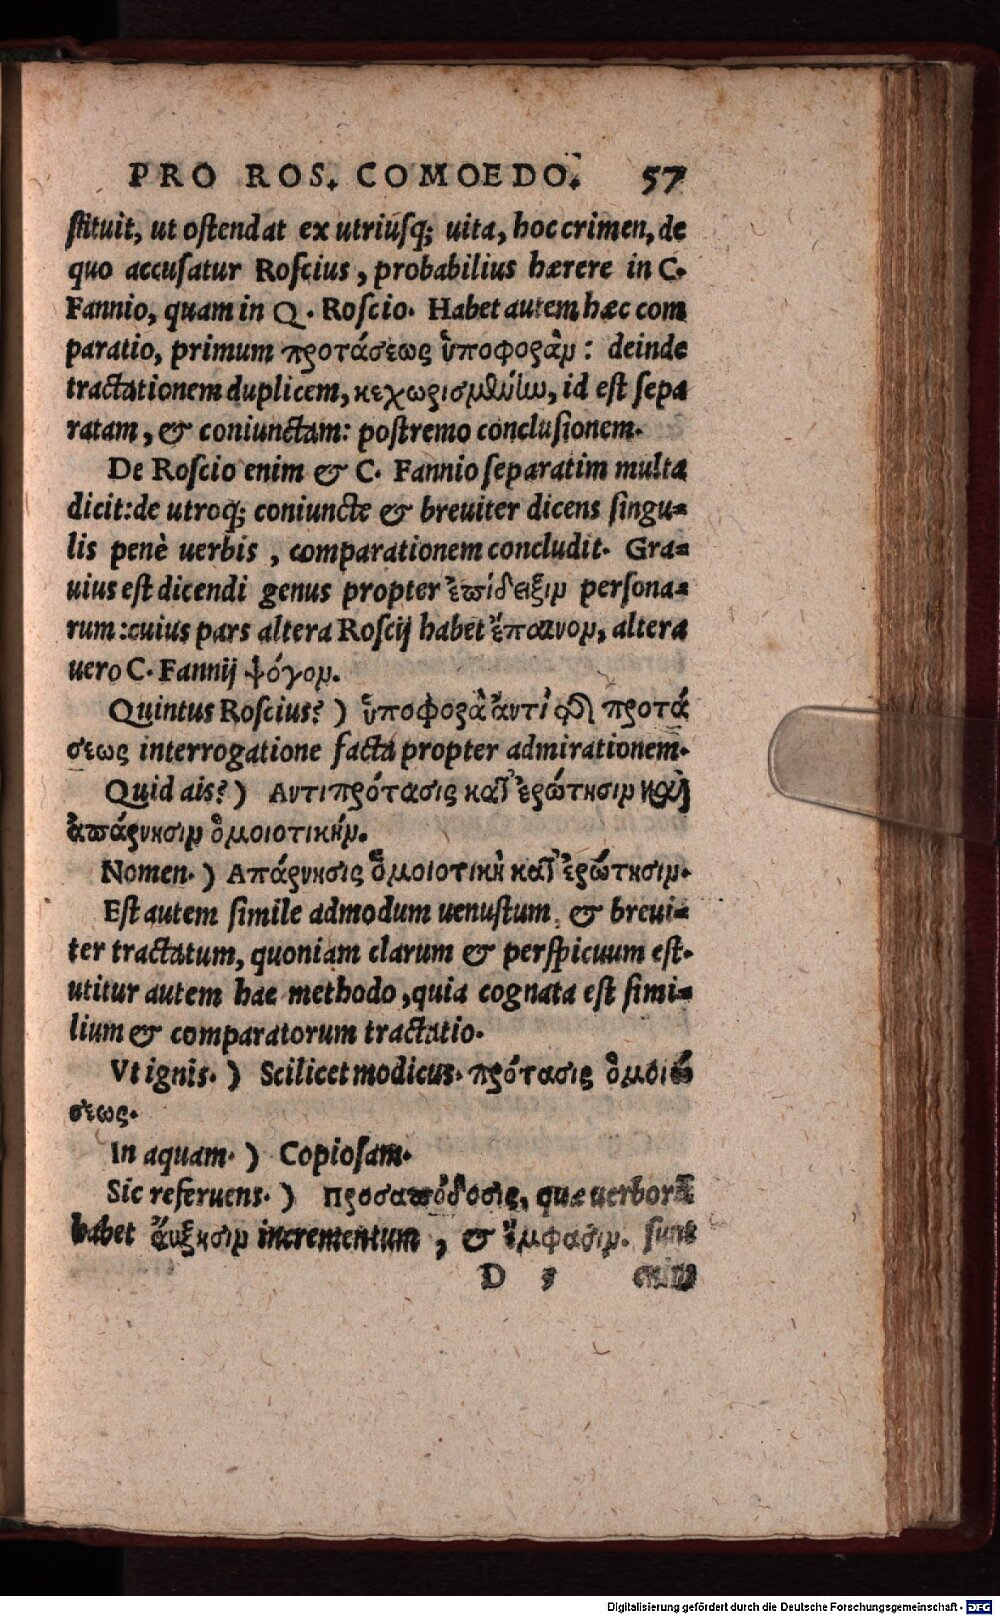 PRO ROS. COMOEDO. 57
stituit, ut ostendat ex utriusq; uita, hoc crimen, de
quo accusatur Roscius, probabilius hærere in C.
Fannio, quam in Q. Roscio. Habet autem hæc com
paratio, primum προτάσεως ὑποφορὰν: deinde
tractationem duplicem, κεχωρισμένην, id est sepa
ratam, & coniunctam: postremo conclusionem.
De Roscio enim & C. Fannio separatim multa
dicit: de utroq; coniuncte & breuiter dicens singu=
lis penè uerbis, comparationem concludit. Gra=
uius est dicendi genus propter ἐπίδειξιν persona=
rum: cuius pars altera Roscij habet ἔπαινον, altera
uero C. Fannij ψόγον.
Quintus Roscius?) ὑποφορὰ ἀντὶ προτά
σεως interrogatione facta propter admirationem.
Quid ais?) Αντιπρότασις κατ' ἐρώτησιν καὶ
ἀπάρνησιν ὁμοιοτικήν.
Nomen.) Απάρνησις ὁμοιοτικὴ κατ' ἐρώτησιν.
Est autem simile admodum uenustum & breui=
ter tractatum, quoniam clarum & perspicuum est.
utitur autem hae methodo, quia cognata est simi=
lium & comparatorum tractatio.
Vt ignis.) Scilicet modicus. πρότασις ὁμοιώ
σεως.
In aquam.) Copiosam.
Sic referuens.) Προσαπόδοσις, quæ uerborũ
habet ἄυξησιν incrementum, & ἔμφασιν. sunt
D 5 enim
Digitalisierung gefördert durch die Deutsche Forschungsgemeinschaft - DFG